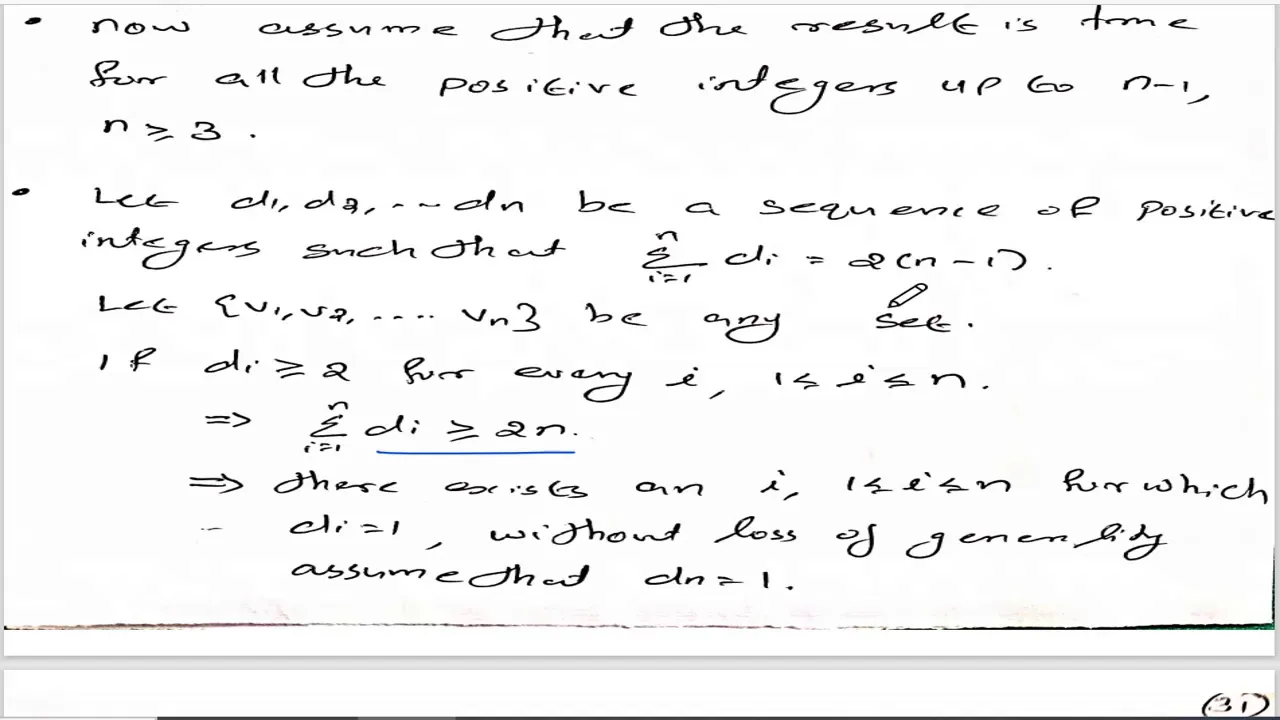 • now assume that the result is true
for all the positive integers up to n-1,
n ≥ 3 .
• Let d1, d2, ... dn be a sequence of positive
integers such that ∑_{i=1}^{n} di = 2(n-1).
Let {v1, v2, .... vn} be any set.
If di ≥ 2 for every i, 1 ≤ i ≤ n.
=> ∑_{i=1}^{n} di ≥ 2n.
=> there exists an i, 1 ≤ i ≤ n for which
di = 1, without loss of generality
assume that dn = 1.
(31)